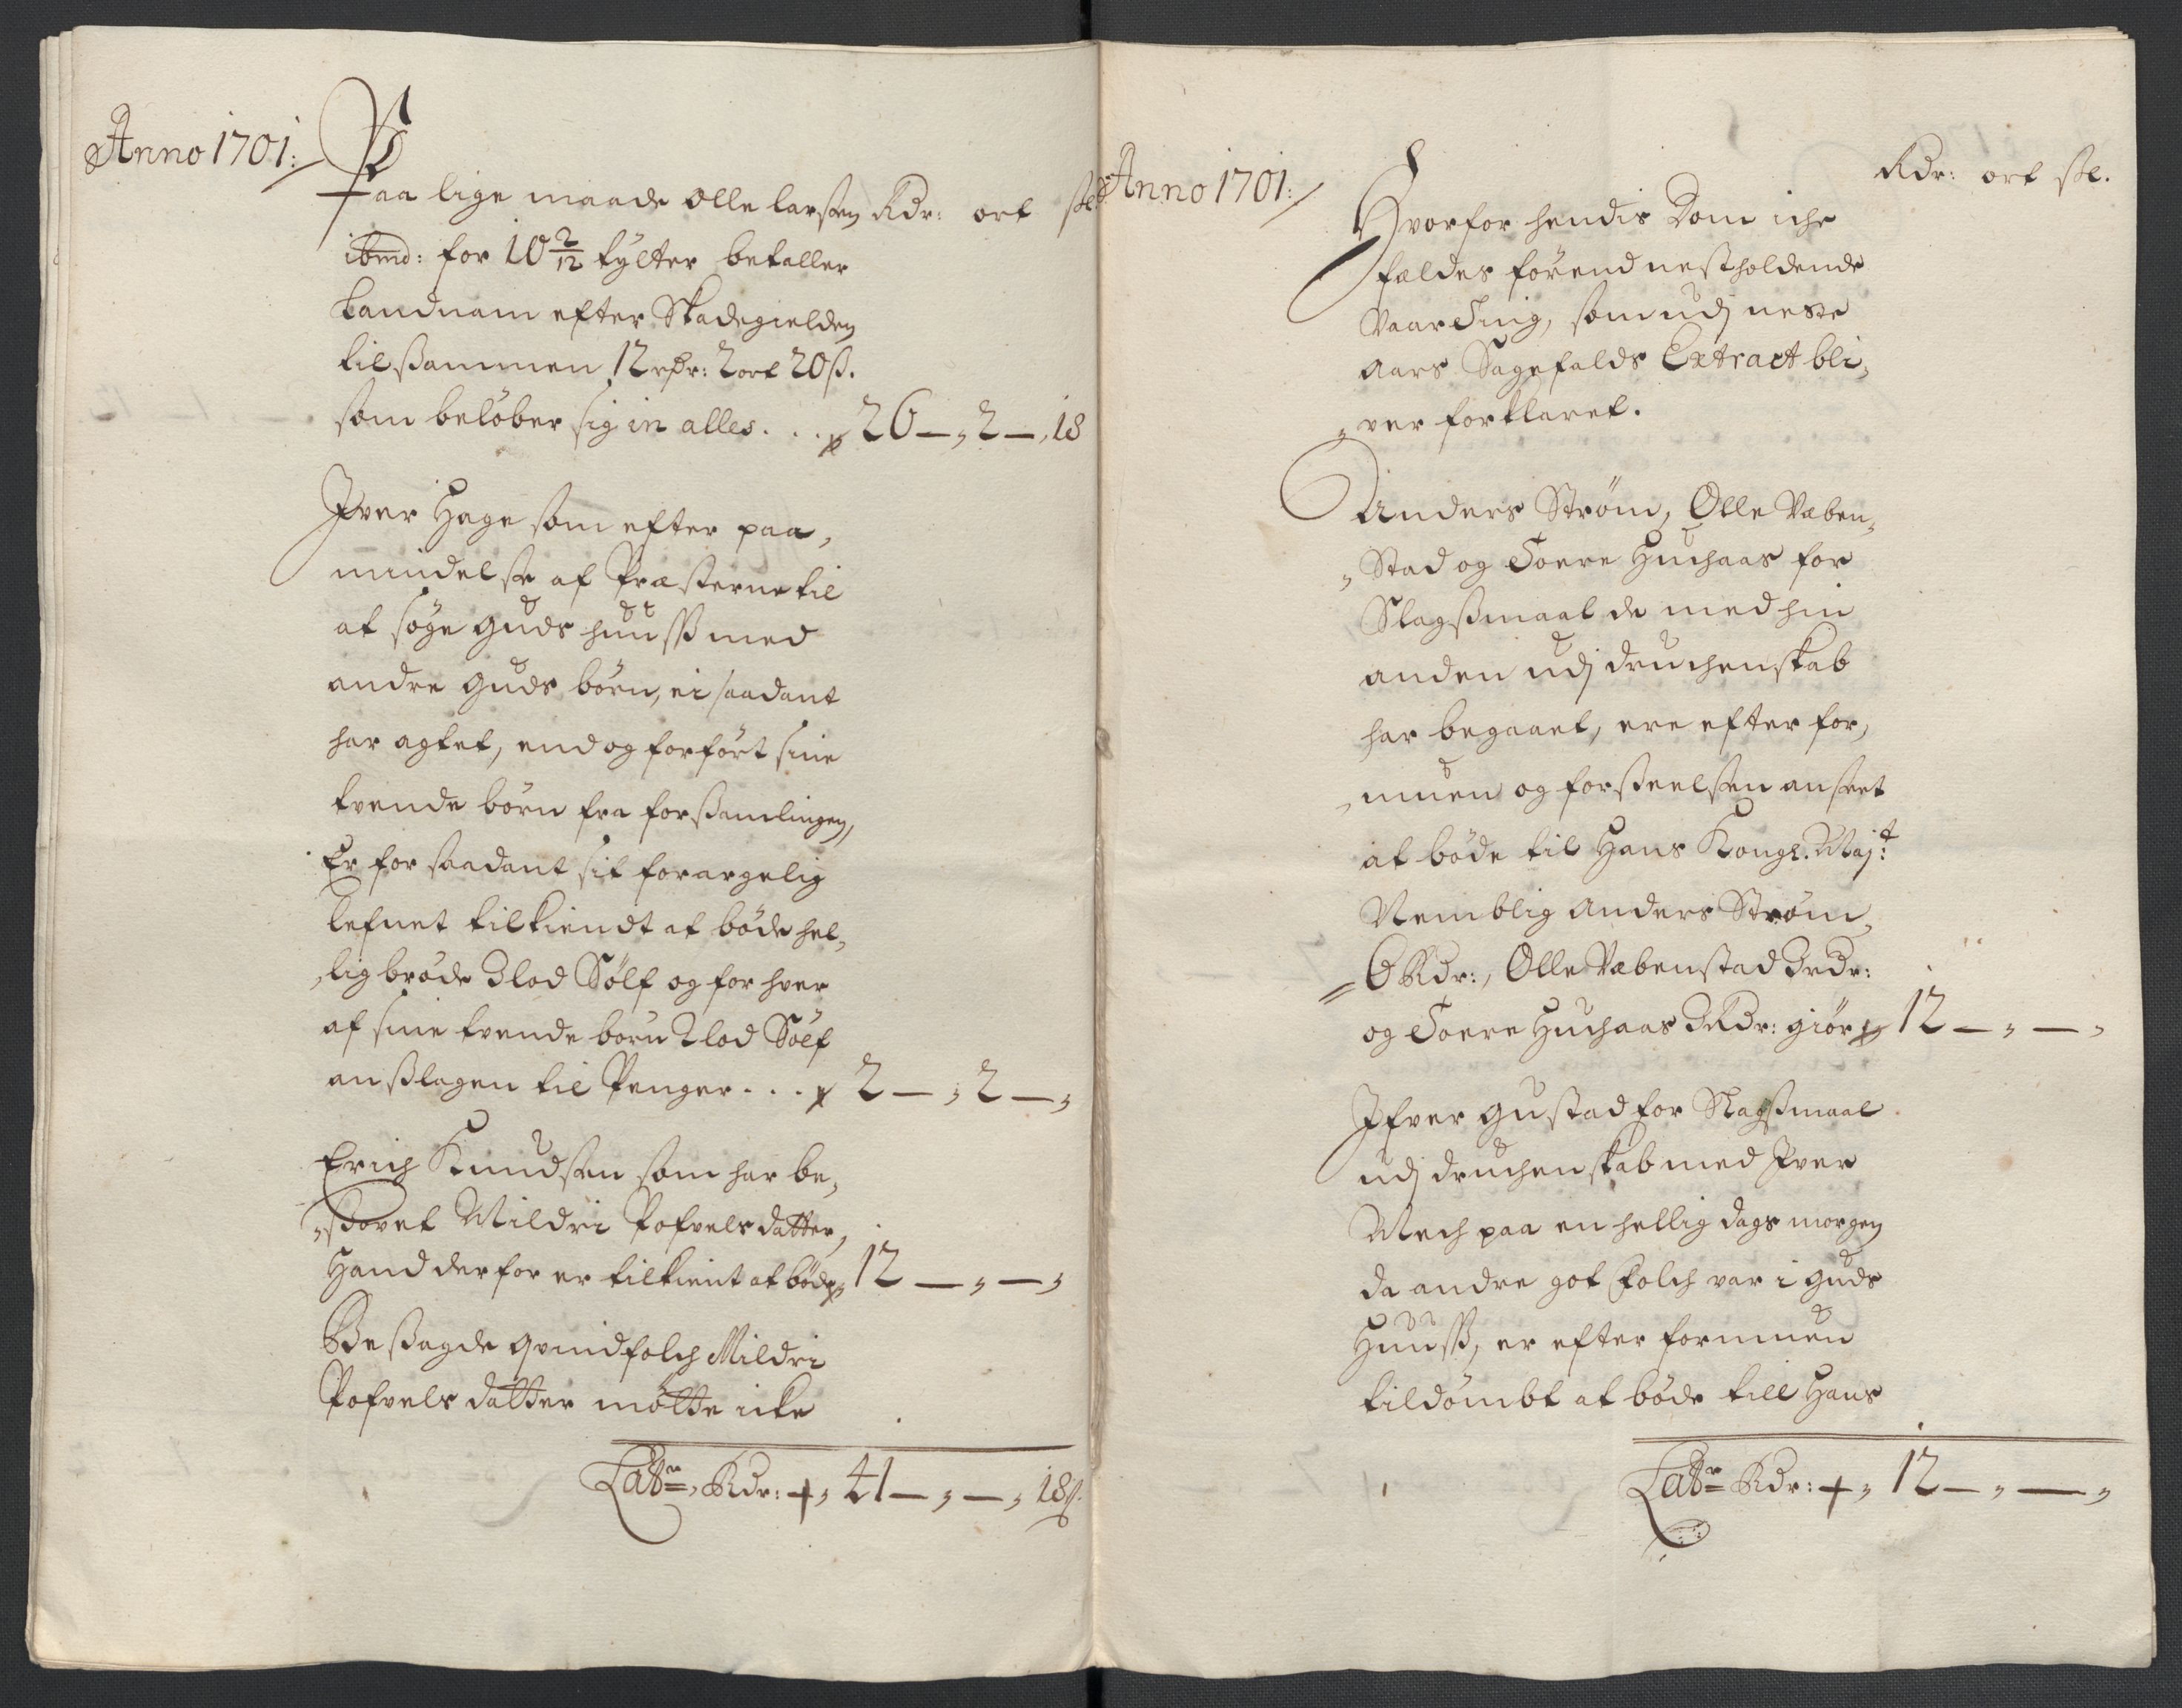 Anno 1701:
Paa lige maade Olle larsßen Rdr: ort ße
ibmd: for 10 2/12 tylter betaller
Landnam efter Skadegielden
tilßammen 12 rdr: 2 ort 20 ß.
som beløber sig in alles. . . 26 — 2 — 18
Iver Hage som efter paa,
mindelße af Præsterne til
at søge Guds huuß med
andre Guds børn, ei saadant
har agtet, end og forført sine
tvende børn fra forßamlingen,
Er for saadant sit forargelig
lefnet tilkiendt at bøde hel,
,lig brøde 3 lod Sølf og for hver
af sine tvende børn 2 lod Sølf
anßlagen til Penger . . . 2 — 2 —
Erich Knudsen som har be,
,ßovet Mildri Pofvels datter,
Hand derfor er tilkient at bøde 12 — —
Beßagde qvindfolch Mildri
Pofvels datter møtte icke
Latr. Rdr: 41 — — 18 ß.
Anno 1701:
Rdr: ort ße.
Hvorfor hendis Dom iche
fældes førend nestholdende
VaarTing, som udj neste
Aars Sagefalds Extract bli,
,ver forklaret.
Anders Strøm, Olle Væben,
,Stad og Toere Huchaas for
Slagßmaal de med hin
anden udj druchenskab
har begaaet, ere efter for,
,muen og forßeelßen anßeet
at bøde til Hans Kongl. Majt:
Nemblig Anders Strøm,
6 Rdr:, Olle Væbenstad 3 rdr:
og Toere Huchaas 3 Rdr: giør 12 — —
Ifver Gustad for Slagßmaal
udj druchenskab med Iver
Mech paa en hellig dags morgen
da andre got Folch var i Guds
Huuß, er efter formuen
tildømbt at bøde till Hans
Latr Rdr: 12 — —